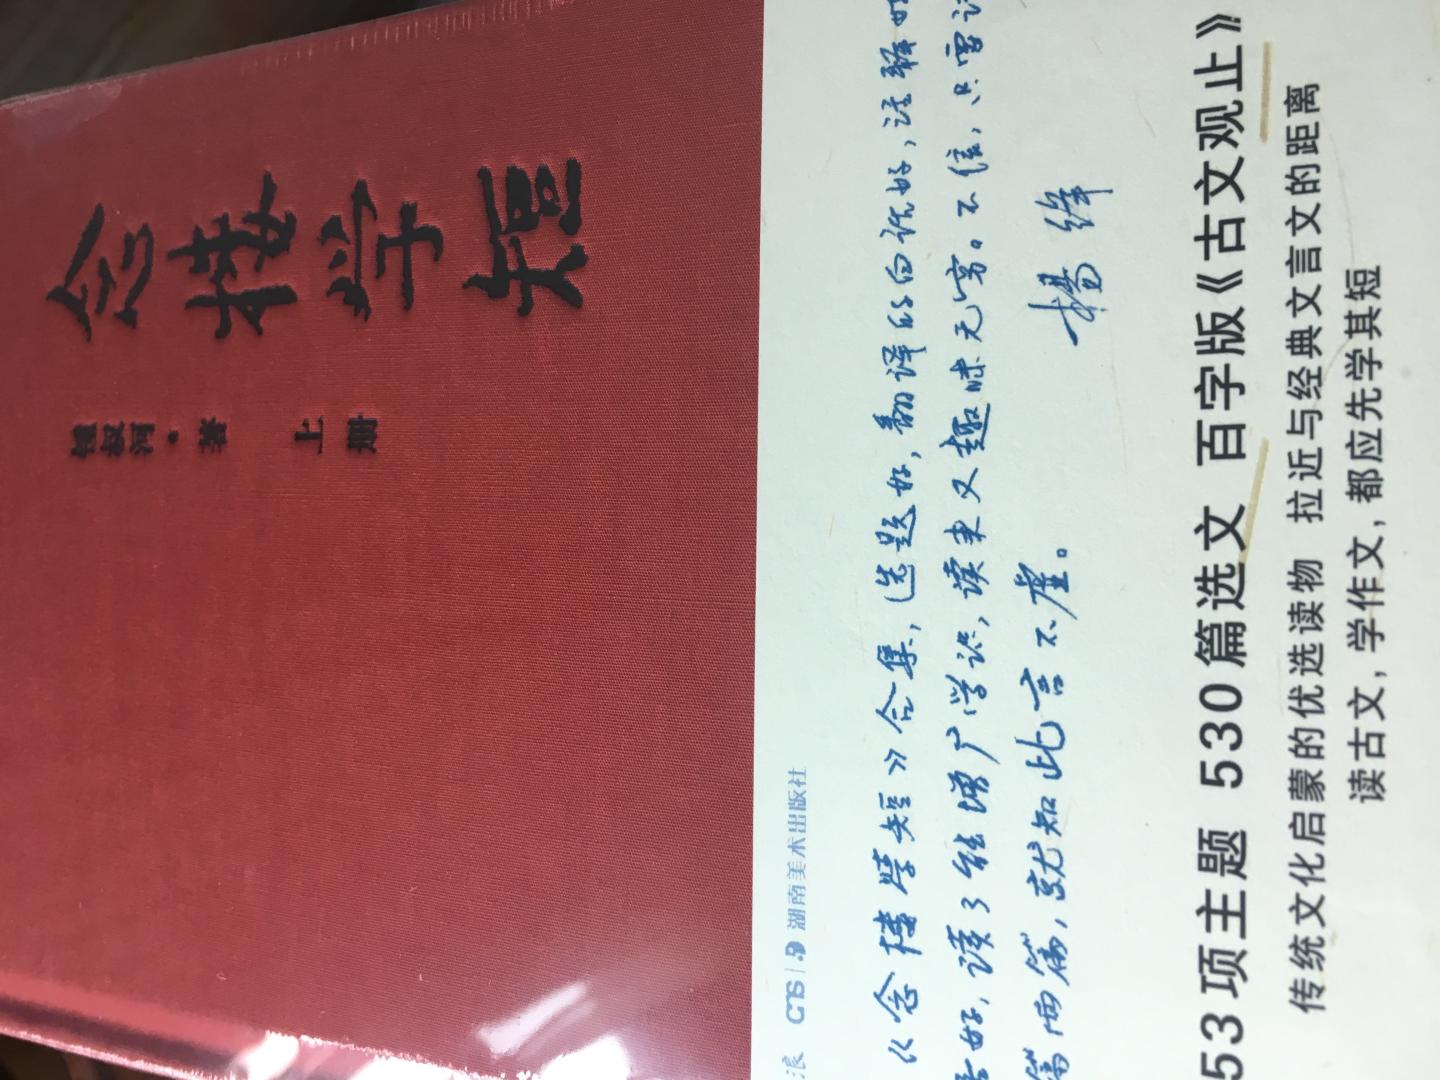 念楼学短
锺叔河·著
上册
浪 CNS 湖南美术出版社
《念楼学短》合集,选题好,翻译的白话好,注释好
好,读了能增广学识,读来又趣味无穷。不信,只需
篇两篇,就知此言不虚。
杨绛
53项主题 530篇选文 百字版《古文观止》
传统文化启蒙的优选读物 拉近与经典文言文的距离
读古文,学作文,都应先学其短